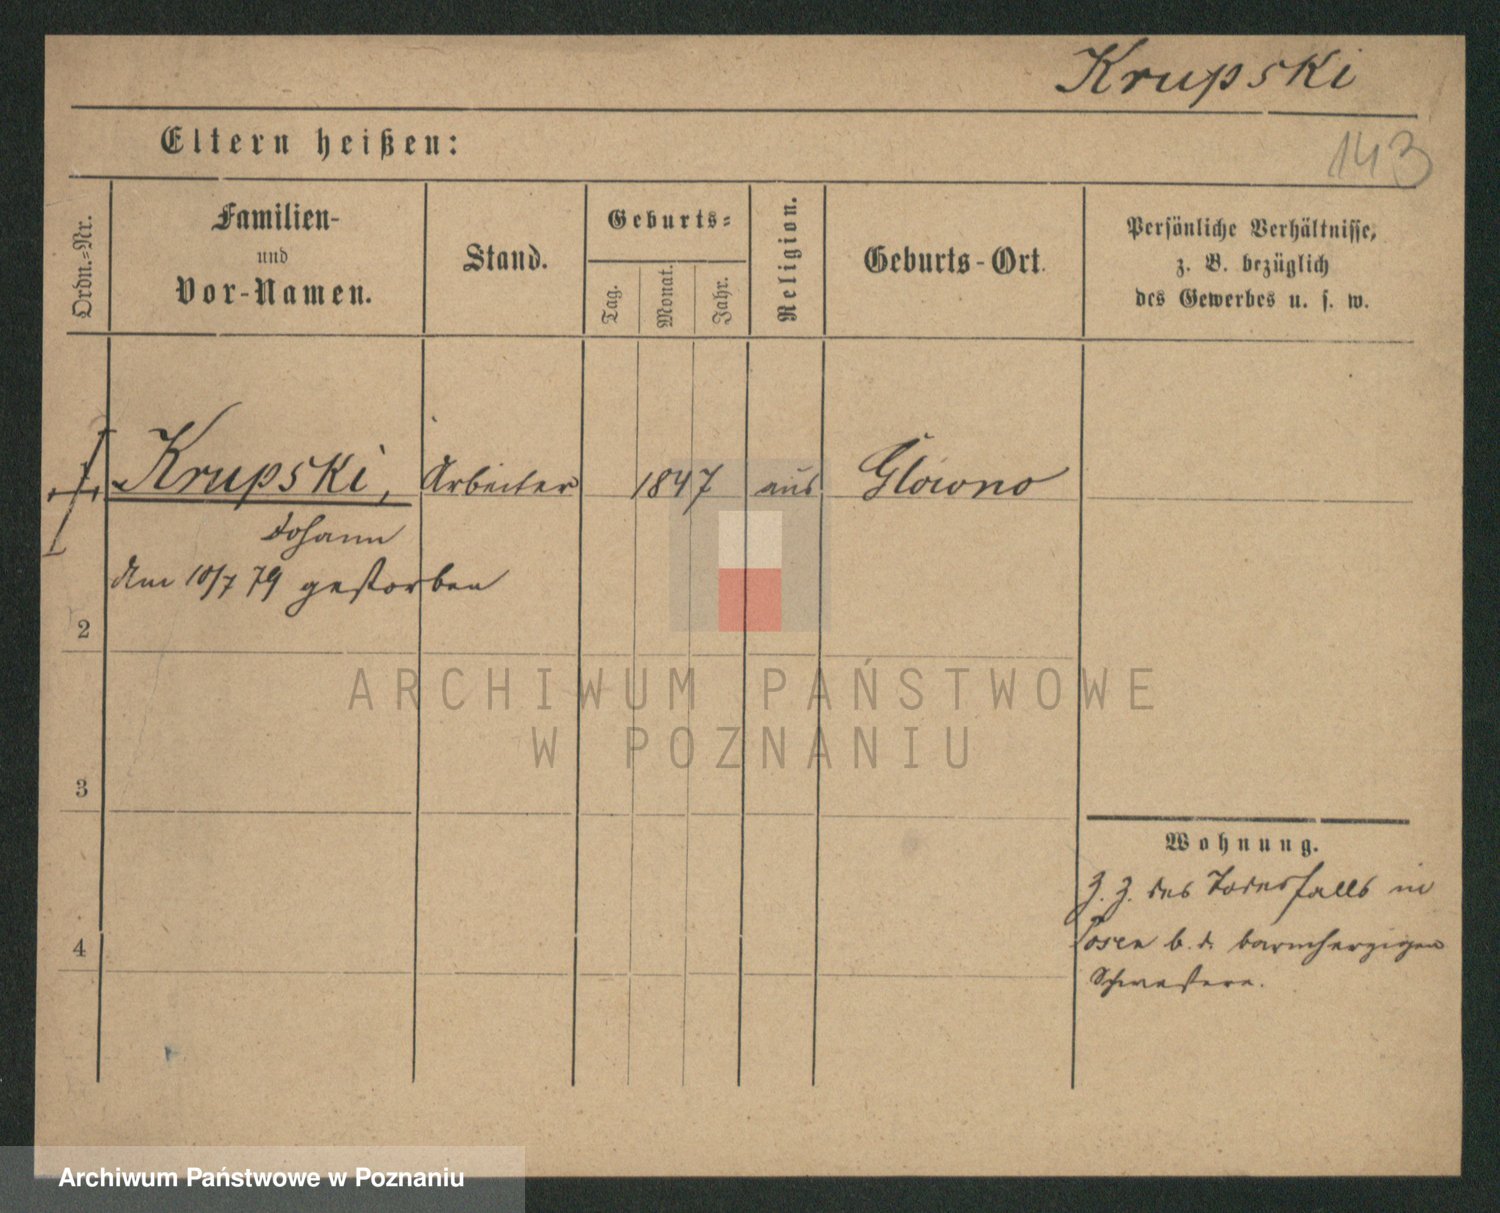 Krupski
143
Eltern heißen:
Ordn.-Nr.
Familien-
und
Vor-Namen.
Stand.
Geburts-
Tag.
Monat.
Jahr.
Religion.
Geburts-Ort.
Persönliche Verhältnisse,
z. B. bezüglich
des Gewerbes u. s. w.
Krupski, Arbeiter 1847 aus Glowno
Johann
Am 10/7 79 gestorben
2
3
4
Wohnung.
z. Z. des Todesfalls in
Posen b. d. barmherzigen
Schwestern.
ARCHIWUM PAŃSTWOWE
W POZNANIU
Archiwum Państwowe w Poznaniu